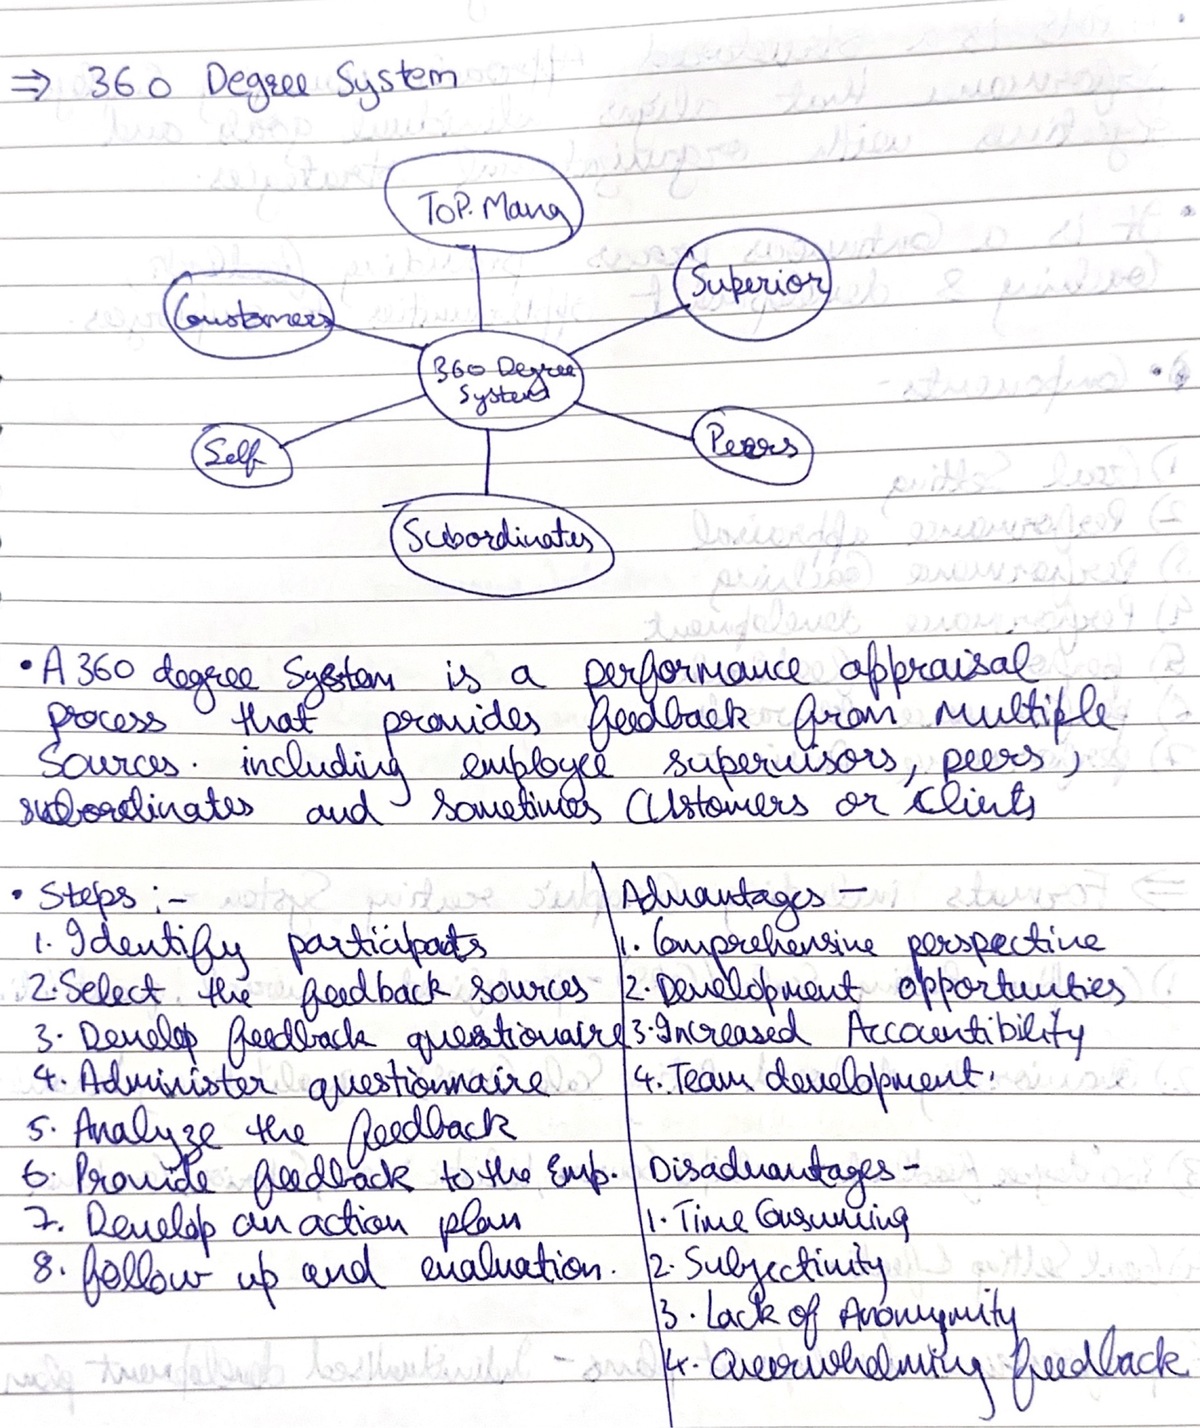 ⇒ 360 Degree System
TOP. Mang
Superior
Customers
360 Degree
System
Self
Peers
Subordinates
• A 360 degree System is a performance appraisal
process that provides feedback from multiple
Sources. including employee supervisors, peers,
subordinates and sometimes Customers or Clients
• Steps :-
1. Identify participats
2. Select the feedback sources
3. Develop feedback questionaire
4. Administer questionnaire
5. Analyze the feedback
6. Provide feedback to the Emp.
7. Develop an action plan
8. follow up and evaluation.
Advantages -
1. Comprehensive perspective
2. Development opportunities
3. Increased Accountibility
4. Team development.
Disadvantages -
1. Time Consuming
2. Subjectivity
3. Lack of Anonymity
4. Overwhelming feedback